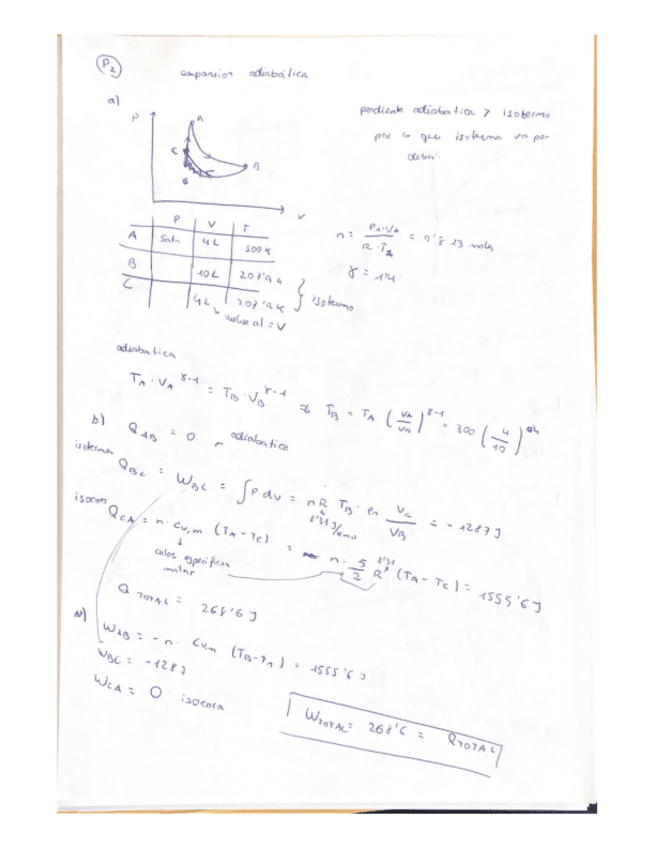 P2
expansion adiabática
a)
pendiente adiabatica > isoterma
por lo que isoterma va por
debajo.
P
A
C
B
V
P V T
A 5atm 4L 300K
B 10L 207'9 K
C 4L 207'9K } isoterma
vuelve al = V
n = PA·VA / R·TA = 0'813 moles
γ = 1'4
adiabatica
TA · VA^γ-1 = TB · VB^γ-1 ⇒ TB = TA (VA/VB)^γ-1 = 300 (4/10)^0'4
b) QAB = 0 adiabatico
isoterma
QBC = WBC = ∫P·dV = nR TB · ln VC/VB = -1287 J
isocora
QCA = n · CV,m (TA - TC) = n · 5/2 R (TA - TC) = 1555'6 J
8'31
calor específico
molar
Q TOTAL = 268'6 J
WAB = -n· CV,m (TB-TA) = 1555'6 J
WBC = -1287
WCA = 0 isocora
WTOTAL = 268'6 = QTOTAL